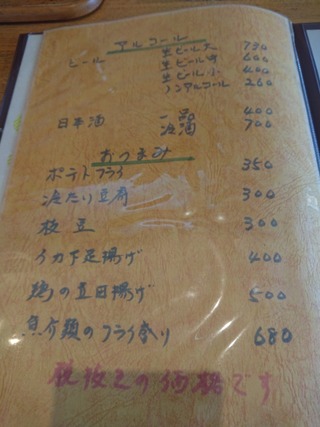 アルコール
ビール 生ビール大 730
生ビール中 600
生ビール小 400
ノンアルコール 260
日本酒 一品 400
冷酒 700
おつまみ
ポテトフライ 350
冷たい豆腐 300
枝豆 300
イカ下足揚げ 400
鶏の立田揚げ 500
魚介類のフライ盛り 680
税抜きの価格です